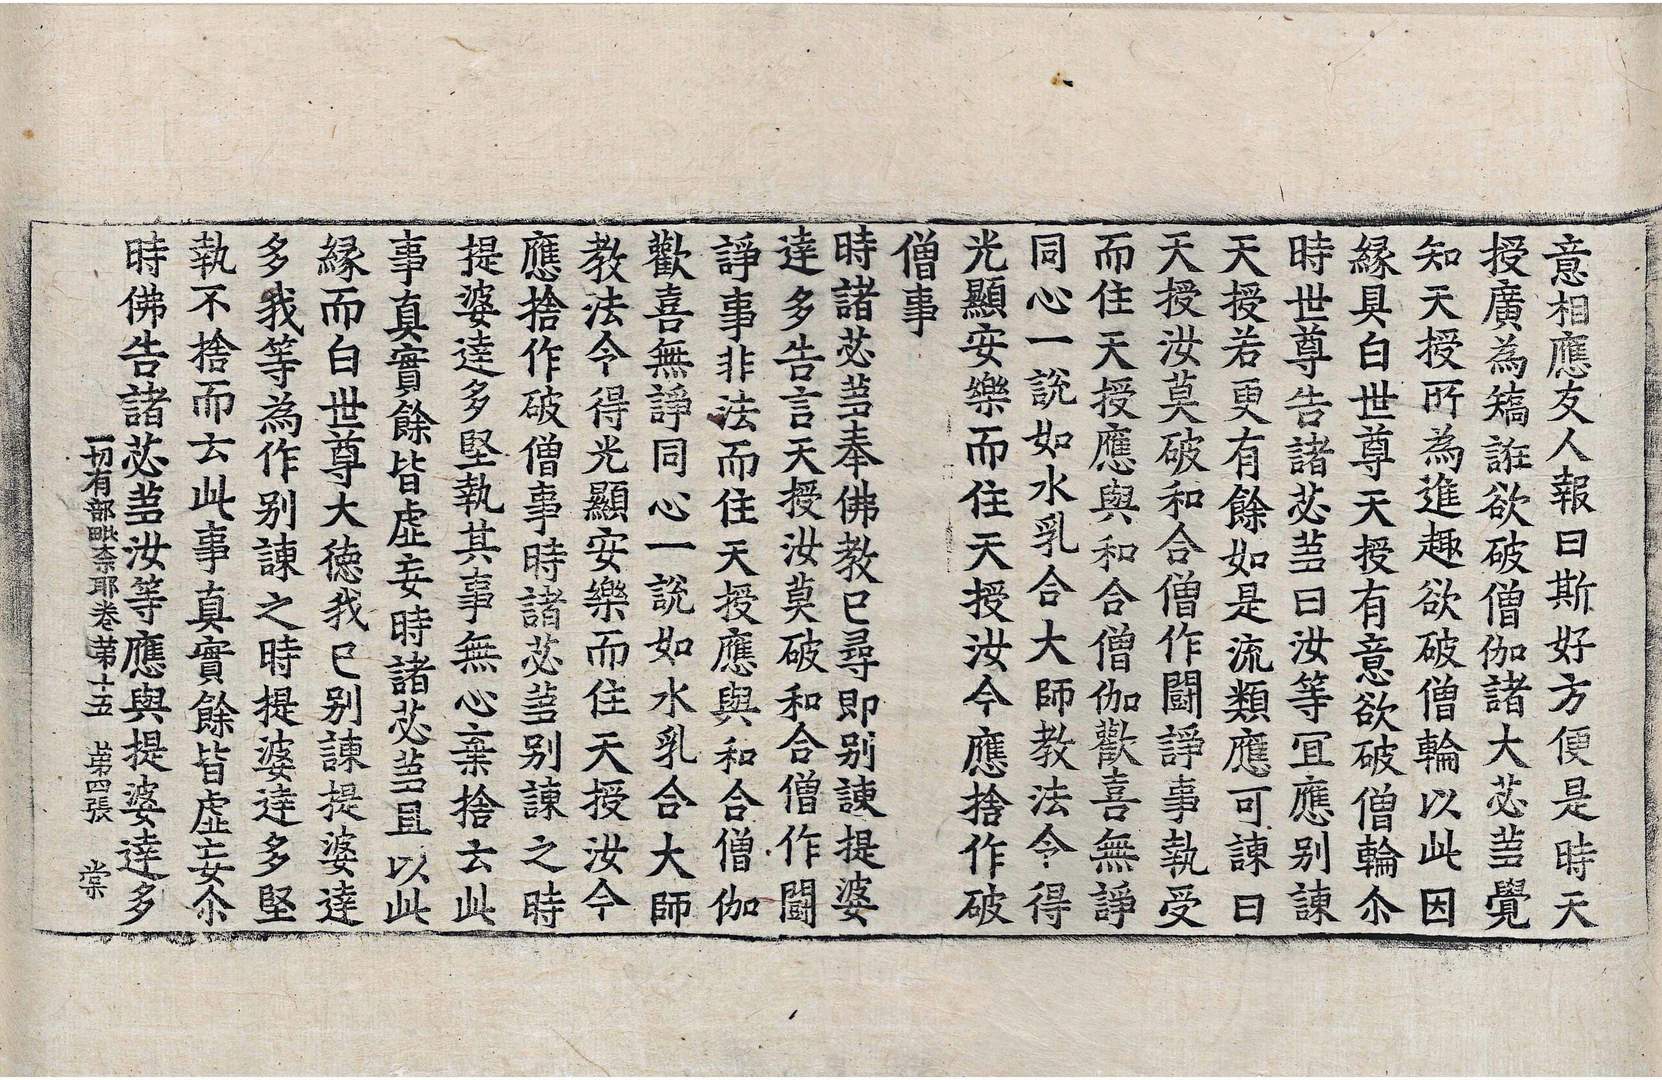 意相應友人報曰斯好方便是時天
授廣為矯誑欲破僧伽諸大苾芻覺
知天授所為進趣欲破僧輪以此因
縁具白世尊天授有意欲破僧輪尒
時世尊告諸苾芻曰汝等冝應別諫
天授若更有餘如是流類應可諫曰
天授汝莫破和合僧作鬪諍事執受
而住天授應與和合僧伽歡喜無諍
同心一說如水乳合大師教法令得
光顯安樂而住天授汝今應捨作破
僧事
時諸苾芻奉佛教已尋即別諫提婆
達多告言天授汝莫破和合僧作鬪
諍事非法而住天授應與和合僧伽
歡喜無諍同心一說如水乳合大師
教法令得光顯安樂而住天授汝今
應捨作破僧事時諸苾芻別諫之時
提婆達多堅執其事無心棄捨云此
事真實餘皆虛妄時諸苾芻且以此
縁而白世尊大德我已別諫提婆達
多我等為作別諫之時提婆達多堅
執不捨而云此事真實餘皆虛妄尒
時佛告諸苾芻汝等應與提婆達多
一切有部毗奈耶卷苐十五 苐四張 棠